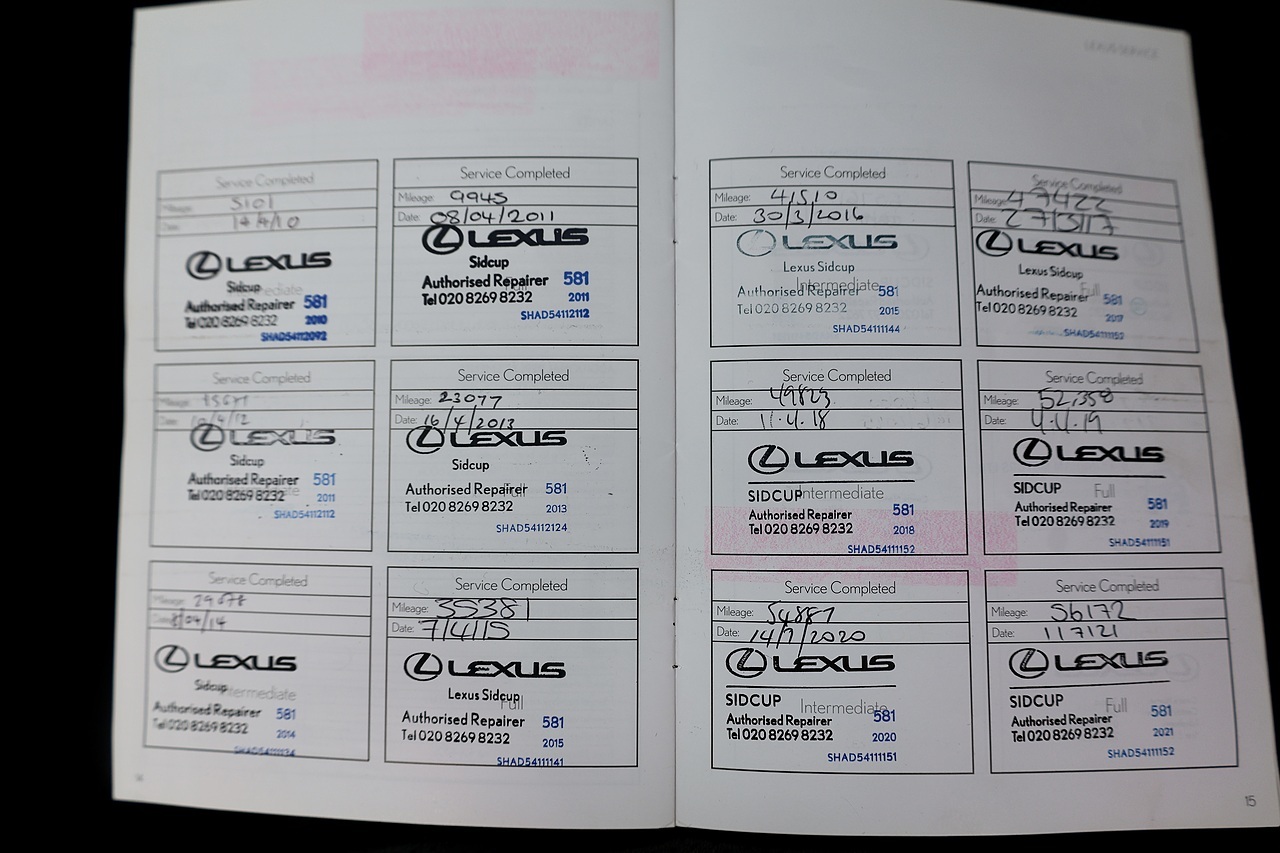 LEXUS SERVICE
Service Completed
Mileage: 5101
Date: 14/4/10
LEXUS
Sidcup
Authorised Repairer 581
Tel 020 8269 8232 2010
SHAD54112092
Service Completed
Mileage: 9945
Date: 08/04/2011
LEXUS
Sidcup
Full
Authorised Repairer 581
Tel 020 8269 8232 2011
SHAD54112112
Service Completed
Mileage:
Date:
LEXUS
Sidcup
Authorised Repairer 581
Tel 020 8269 8232 2011
SHAD54112112
Service Completed
Mileage: 23077
Date: 16/4/2013
LEXUS
Sidcup
Full
Authorised Repairer 581
Tel 020 8269 8232 2013
SHAD54112124
Service Completed
Mileage: 29678
Date: 8/04/14
LEXUS
Sidcup
Intermediate
Authorised Repairer 581
Tel 020 8269 8232 2014
SHAD54111134
Service Completed
Mileage: 35381
Date: 7/4/15
LEXUS
Lexus Sidcup
Full
Authorised Repairer 581
Tel 020 8269 8232 2015
SHAD54111141
Service Completed
Mileage: 41510
Date: 30/3/2016
LEXUS
Lexus Sidcup
Intermediate
Authorised Repairer 581
Tel 020 8269 8232 2015
SHAD54111144
Service Completed
Mileage: 47422
Date: 27/3/17
LEXUS
Lexus Sidcup
Full
Authorised Repairer 581
Tel 020 8269 8232 2017
SHAD54111152
Service Completed
Mileage: 49823
Date: 11.4.18
LEXUS
SIDCUP
Intermediate
Authorised Repairer 581
Tel 020 8269 8232 2018
SHAD54111152
Service Completed
Mileage: 52,358
Date: 4.4.19
LEXUS
SIDCUP Full
Authorised Repairer 581
Tel 020 8269 8232 2019
SHAD54111151
Service Completed
Mileage: 54887
Date: 14/7/2020
LEXUS
SIDCUP
Intermediate
Authorised Repairer 581
Tel 020 8269 8232 2020
SHAD54111151
Service Completed
Mileage: 56172
Date: 1 17121
LEXUS
SIDCUP Full
Authorised Repairer 581
Tel 020 8269 8232 2021
SHAD54111152
14
15